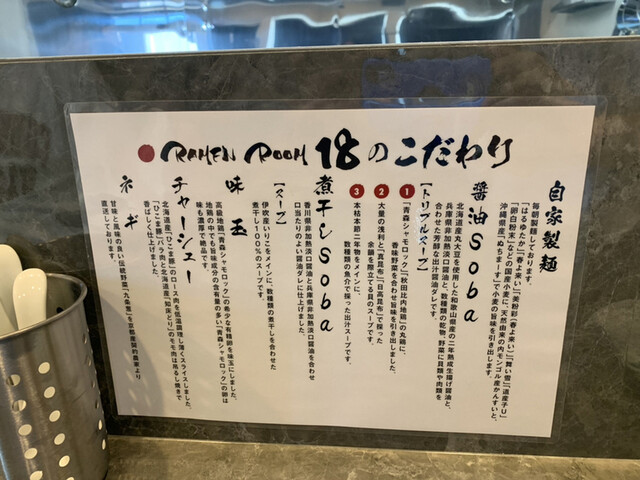 RAMEN ROOM 18のこだわり
自家製麺
毎朝製麺しております。
「はるゆたか」「春よ来い」「美粉彩(春よ来い)」「舞い雪」「道産子U」
「卵白粉末」などの国産小麦に、天然由来の内モンゴル産かんすいと、
沖縄県産「ぬちまーす」で小麦の旨味を引き出します。
醤油Soba
北海道産丸大豆を使用した和歌山県産の二年熟成生揚げ醤油と、
兵庫県非加熱淡口醤油と、数種類の乾物、野菜に貝類や肉類を
合わせた芳醇な出汁醤油ダレです。
【トリプルスープ】
1 「青森シャモロック」「秋田比内地鶏」の丸鶏に、
香味野菜を合わせ旨味を引き出しました。
2 大量の浅利と「真昆布」「日高昆布」で採った
余韻を際立てる貝のスープです。
3 本枯本節二年物をメインに、
数種類の魚介で採った出汁スープです。
煮干しSoba
香川県非加熱淡口醤油と兵庫県非加熱淡口醤油を合わせ
口当たりのよい醤油タレに仕上げました。
【スープ】
伊吹産いりこをメインに、数種類の煮干しを合わせた
煮干し100%のスープです。
味玉
高級地鶏「青森シャモロック」の希少な有精卵を味玉にしました。
地鶏の中でも旨味成分の含有量の多い「青森シャモロック」の卵は
味も濃厚で絶品です。
チャーシュー
北海道産「ひこま豚」のロース肉を低温調理し薄くスライスしました。
「ひこま豚」バラ肉と北海道産「寝床とり」のモモ肉は吊るし焼きで
香ばしく仕上げました。
ネギ
甘味と風味の良い伝統野菜「九条葱」を京都産契約農家より
直送しております。